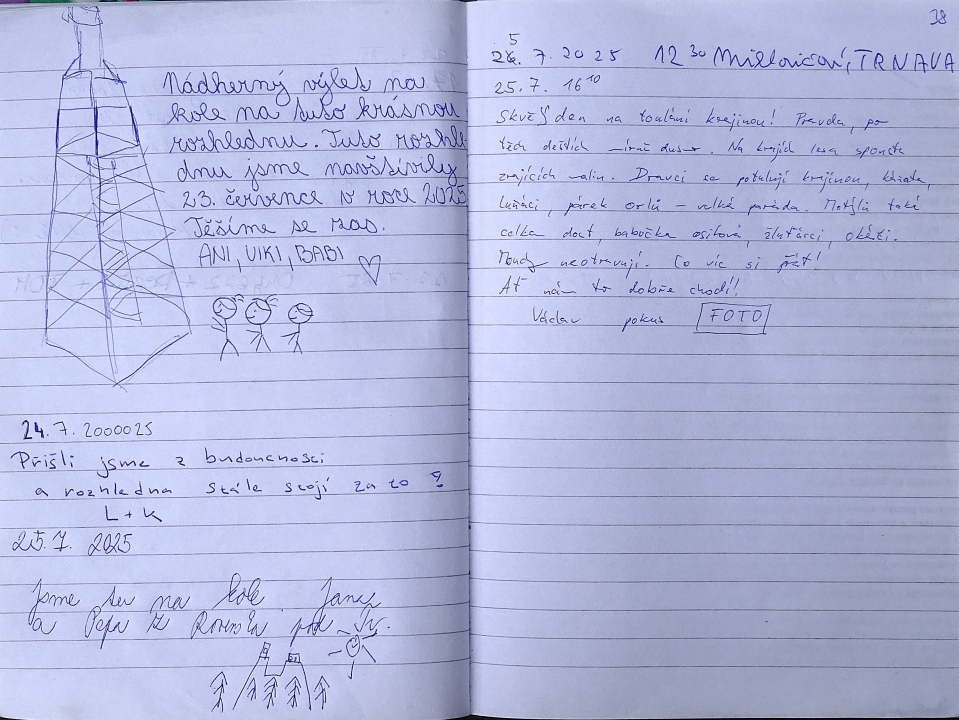 Nádherný výlet na
kole na tuto krásnou
rozhlednu. Tuto rozhle
dnu jsme navštívily
23. července v roce 2025
Těšíme se zas.
ANI, VIKI, BABI
24.7.2000025
Přišli jsme z budoucnosti
a rozhledna stále stojí za to
L+K
25.7. 2025
Jsme tu na kole Jana
a Pepa z Rovenska pod
38
25. 7. 2025 12 30 TRNAVA
25.7. 16 10
Skvělý den na toulání krajinou! Pravda, po
těch deštích mírně dusno. Na krajích lesa spousta
zrajících malin. Dravci se potulují krajinou, káňata,
luňáci, párek orlů – velká paráda. Motýlů také
celkem dost, babočka osiková, žluťásci, okáči.
Mouchy neotravují. Co víc si přát!
Ať nám to dobře chodí!
Václav pokus FOTO